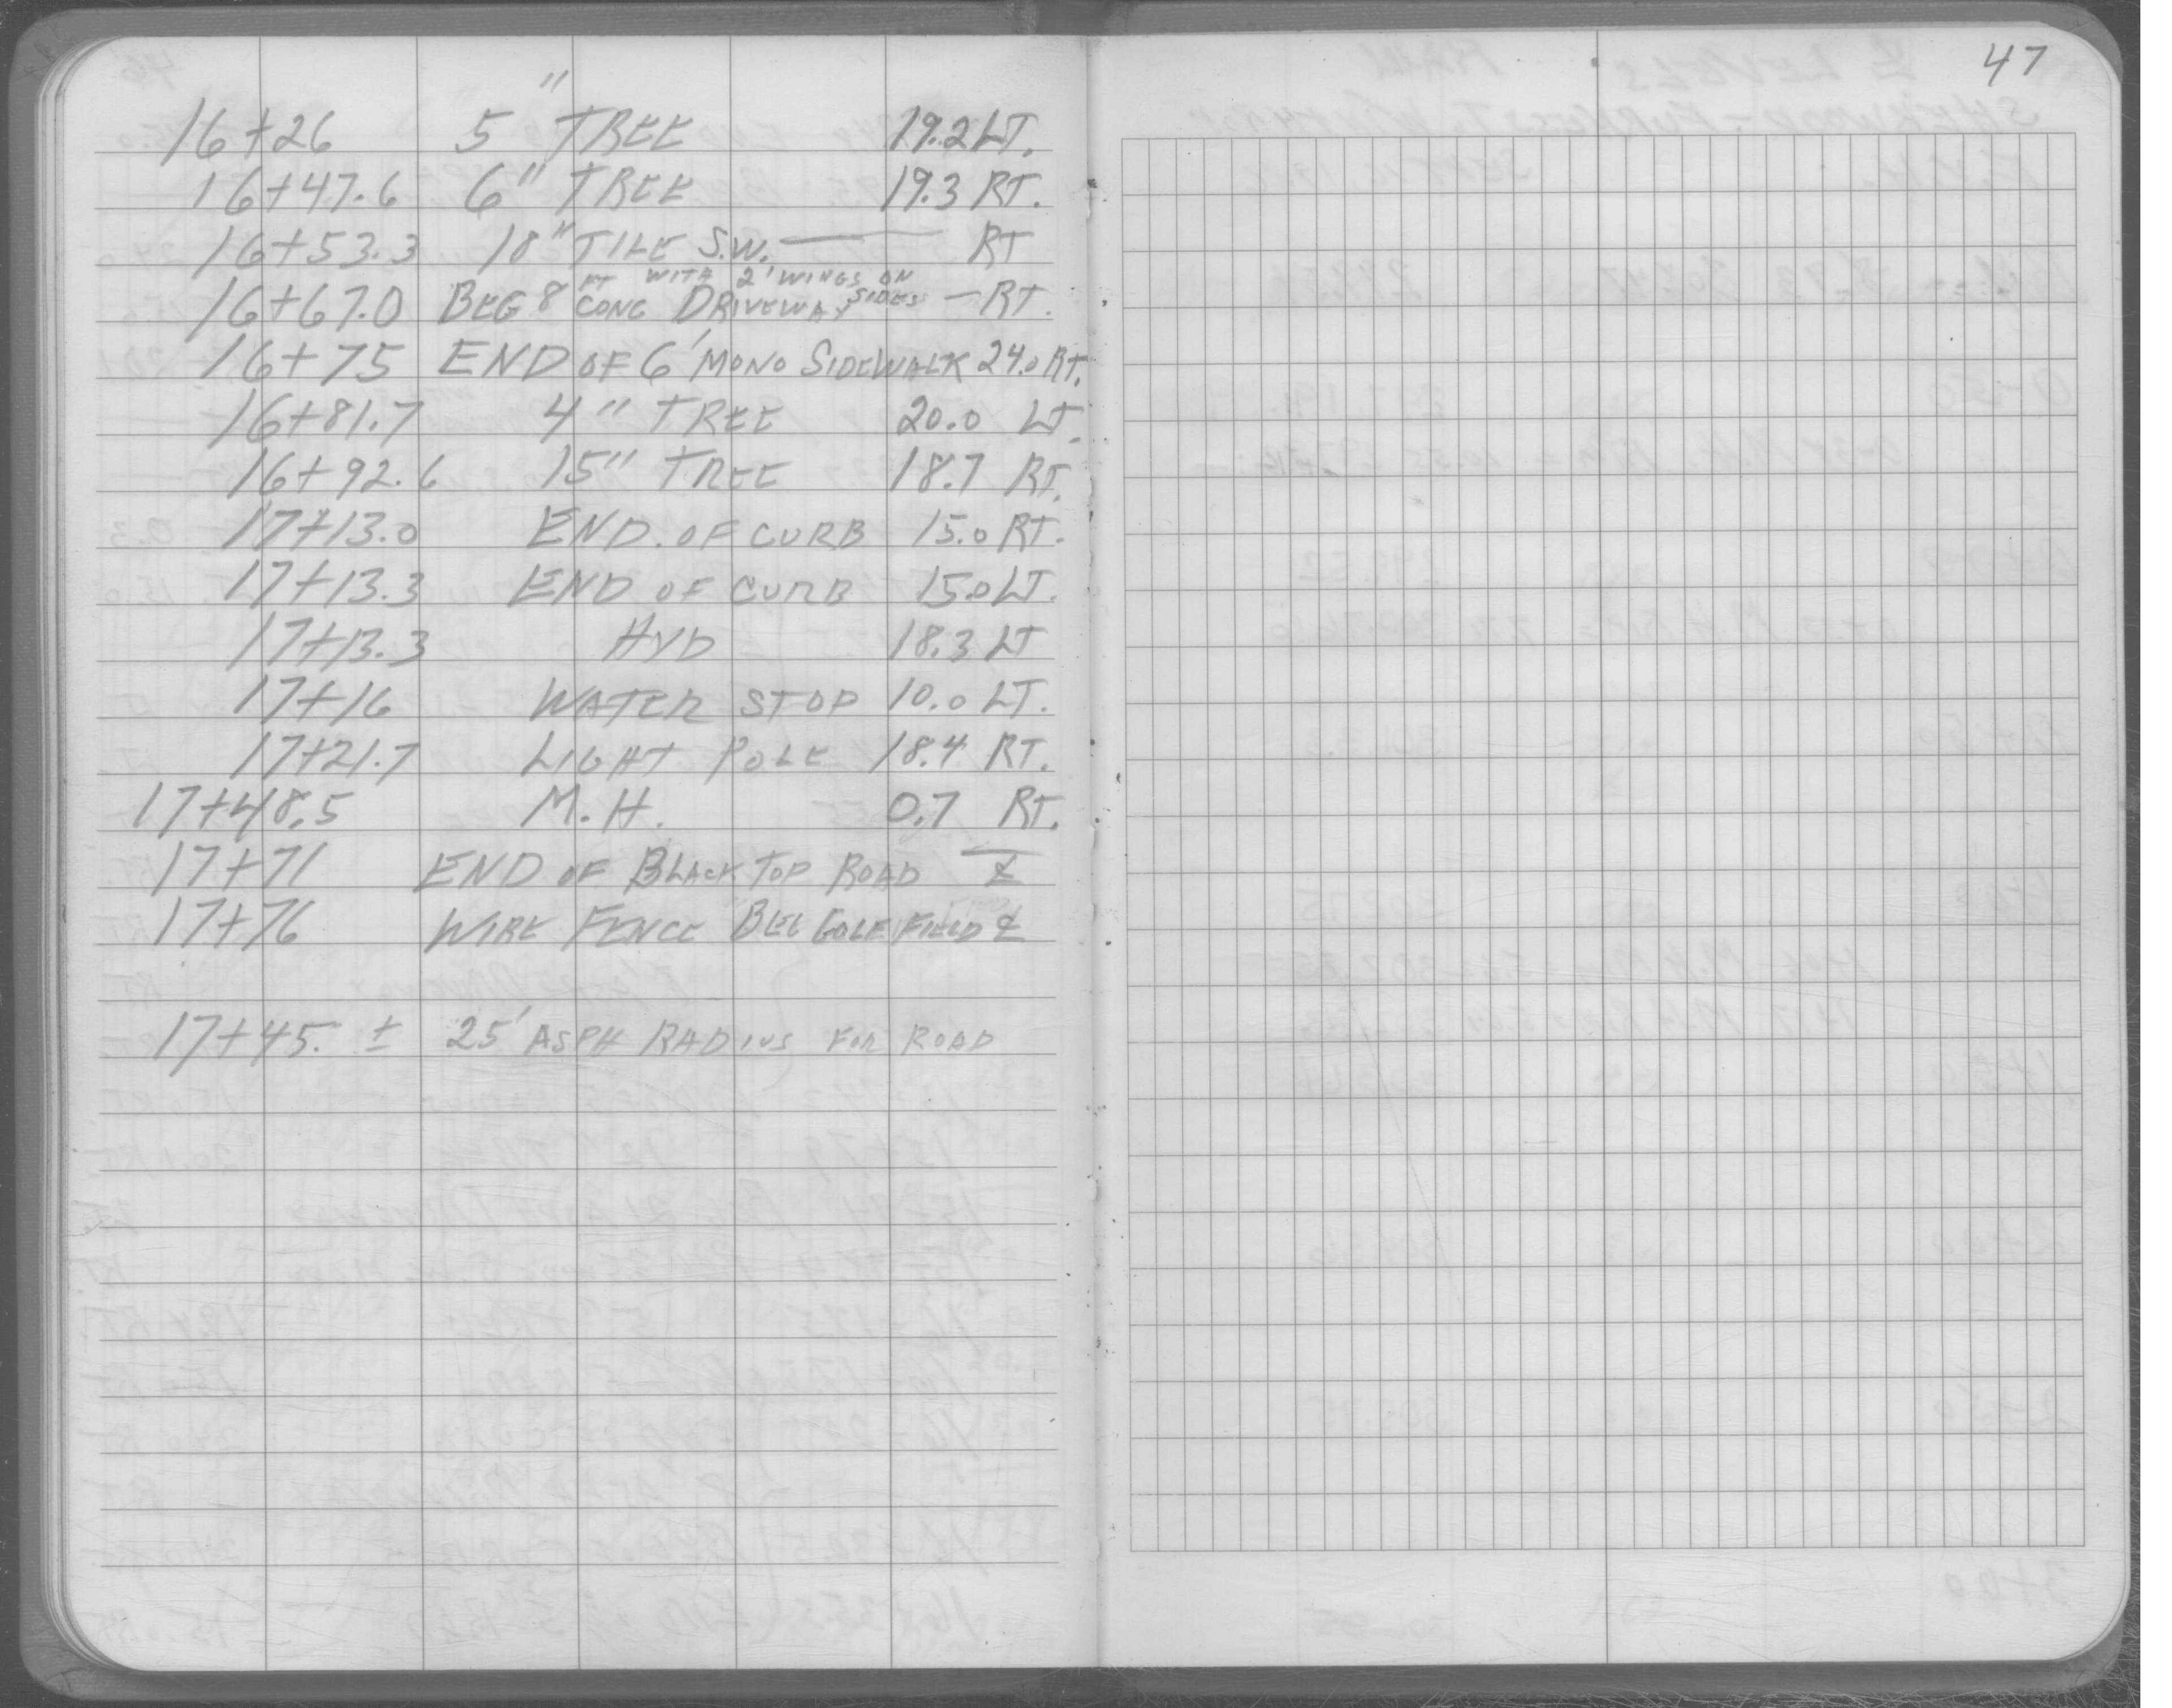 47
16+26 5" TREE 19.2 LT.
16+47.6 6" TREE 19.3 RT.
16+53.3 18" TILE S.W. — RT
16+67.0 BEG 8 FT CONC DRIVEWAY WITH 2' WINGS ON SIDES — RT.
16+75 END OF 6' MONO SIDEWALK 24.0 RT.
16+81.7 4" TREE 20.0 LT.
16+92.6 15" TREE 18.7 RT.
17+13.0 END. OF CURB 15.0 RT.
17+13.3 END OF CURB 15.0 LT.
17+13.3 HYD 18.3 LT
17+16 WATER STOP 10.0 LT.
17+21.7 LIGHT POLE 18.4 RT.
17+48.5 M.H. 0.7 RT.
17+71 END OF BLACK TOP ROAD ℄
17+76 WIRE FENCE BEG GOLF FIELD ℄
17+45. ± 25' ASPH RADIUS FOR ROAD